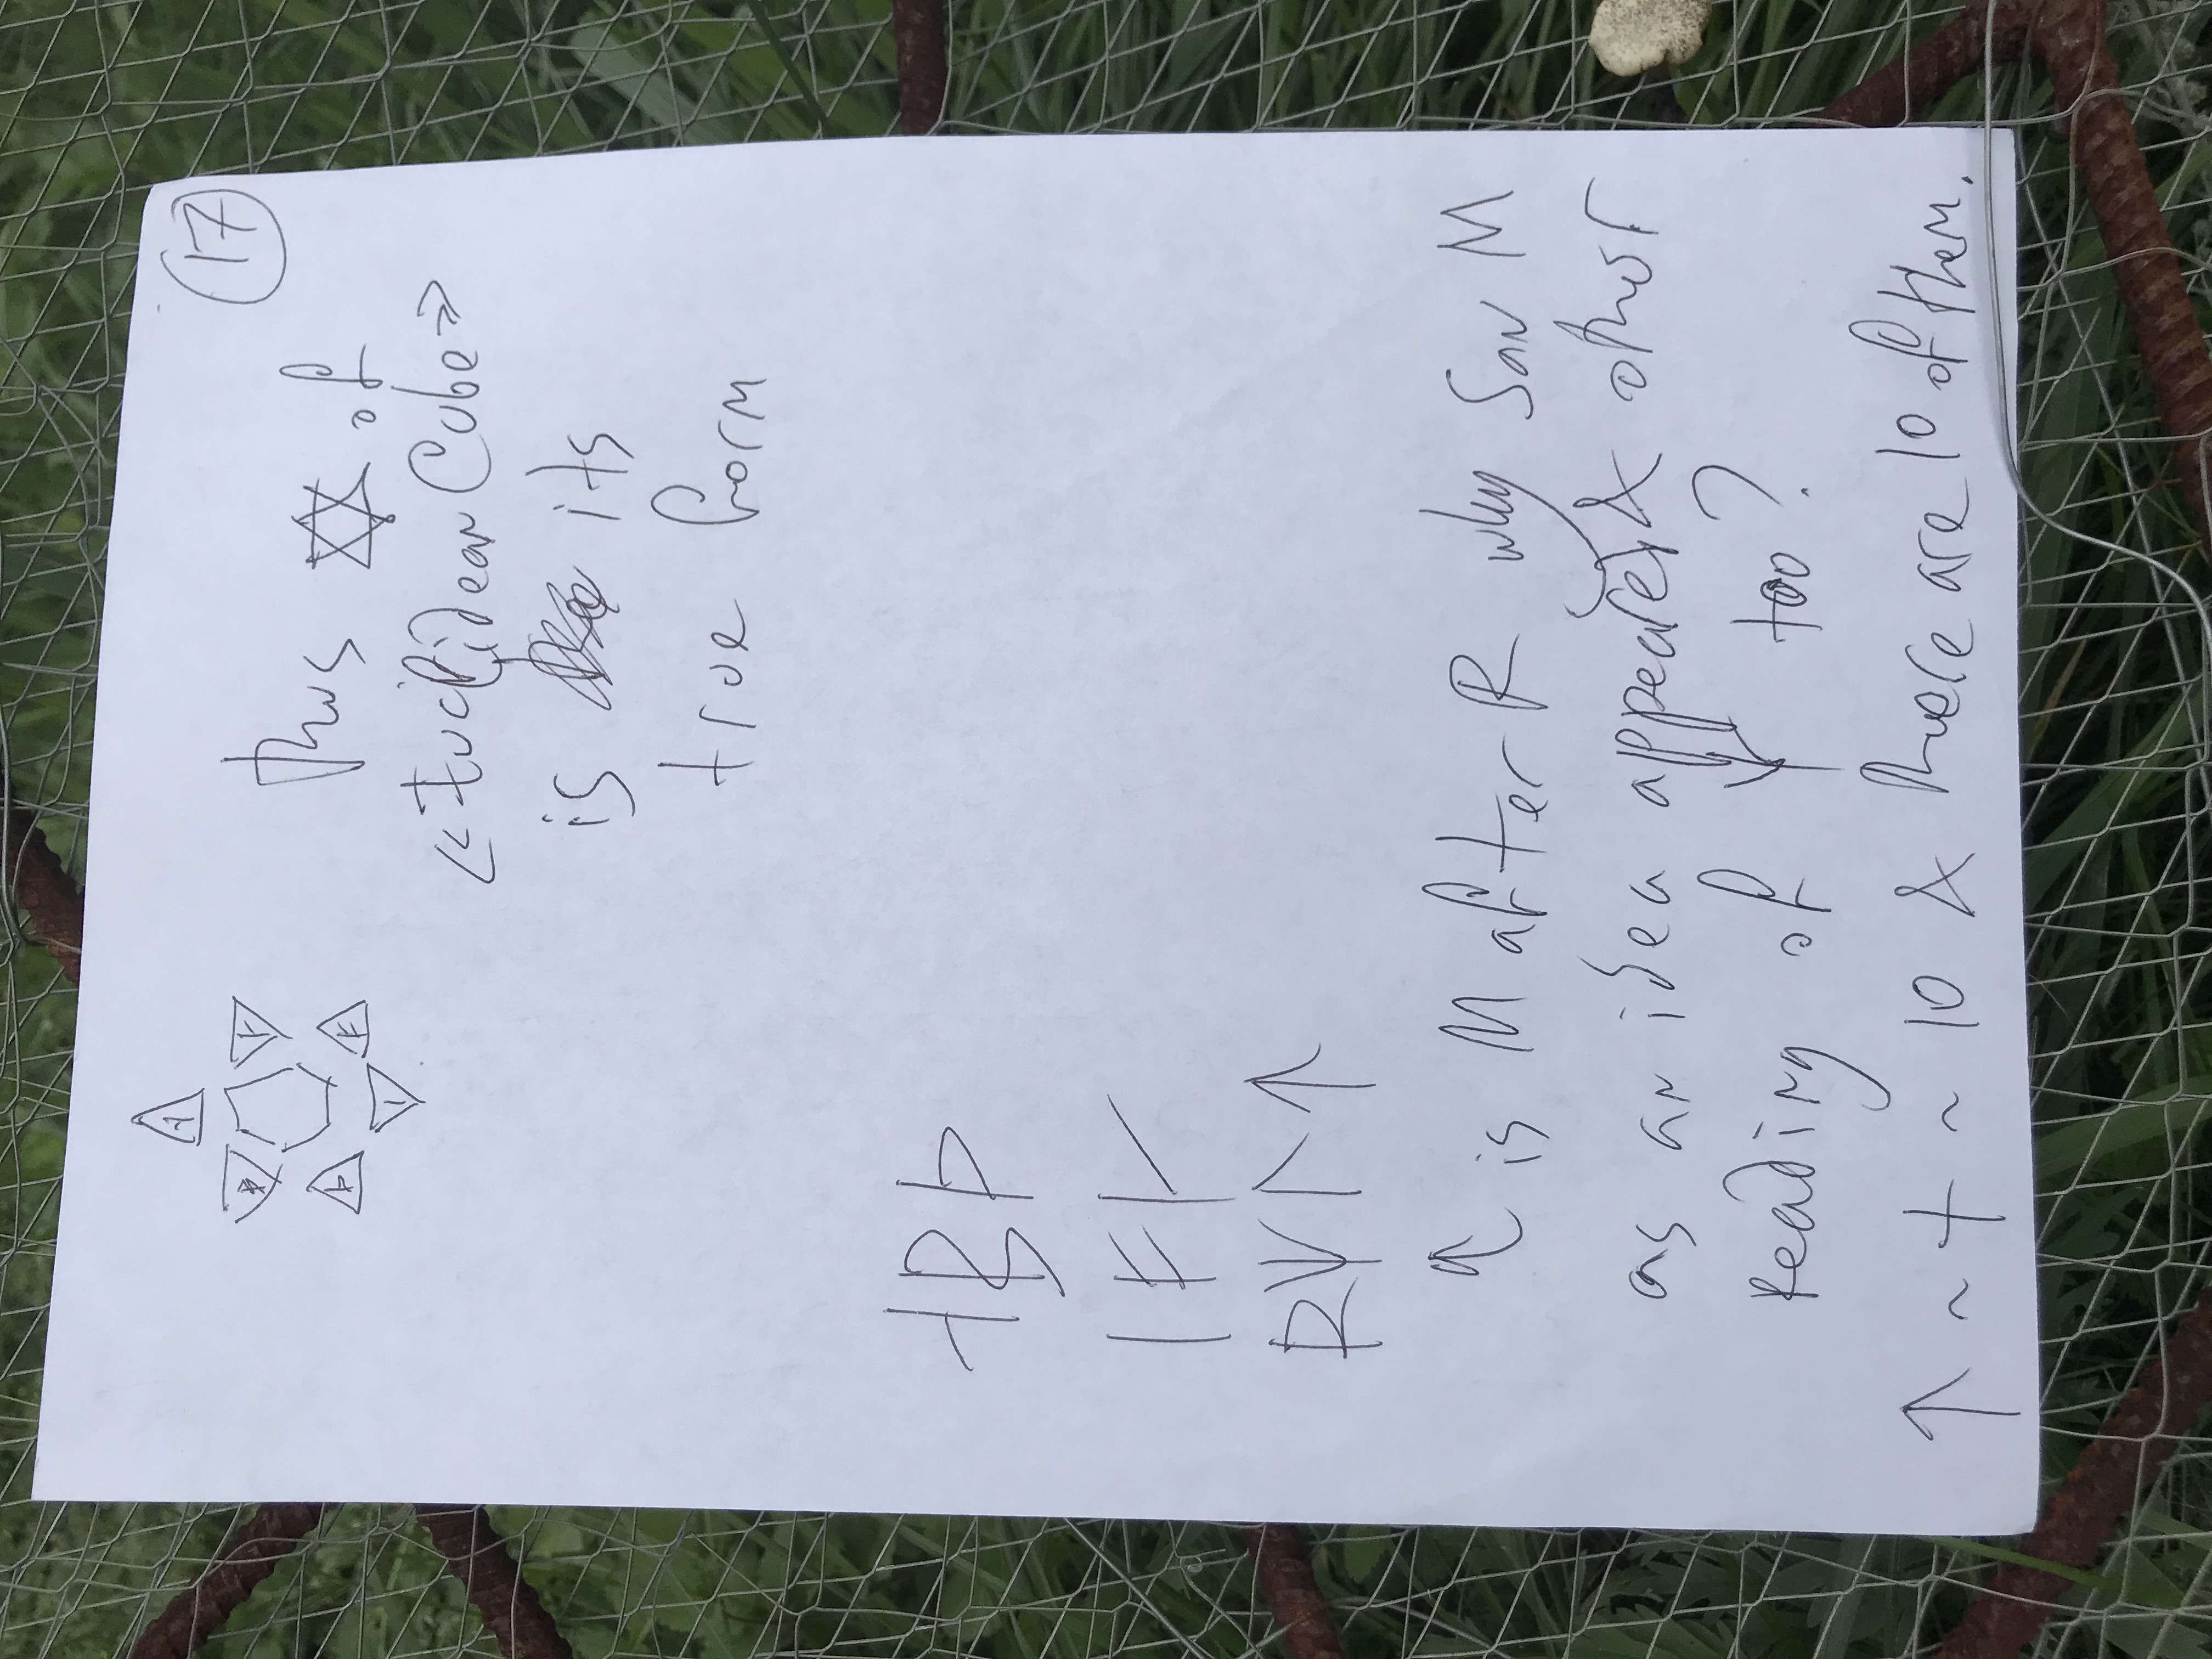 17
Thus ✡ of
« Euclidean Cube »
is its
true form
ᛆ ᛒ ᚦ
ᛁ ᚠ ᚴ
R ᛘ ᛚ ↑
↑ is M after R why San M
as an idea appeared & other
reading of ᛘ too?
↑ ~ + ~ 10 & there are 10 of them.